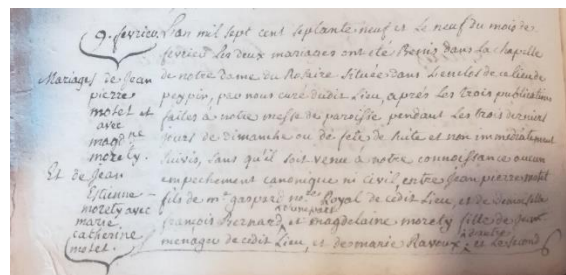 9. fevrier.
Mariages de Jean
pierre
motet et
avec
magd.ne
morety.
Et de Jean
Estienne
morety avec
marie
catherine
motet.
L'an mil sept cent septante neuf et le neuf du mois de
fevrier les deux mariages ont été Benis dans la chapelle
de notre Dame du Rosaire située dans l'enclos de ce lieu de
peypin, par nous curé dudit Lieu, après les trois publications
faites à notre messe de paroisse pendant les trois derniers
jours de dimanche ou de fete, de suite et non immédiatement
suivis, sans qu'il soit venu à notre connoissance aucun
empechement canonique ni civil, entre Jean pierre motet
fils de m.e gaspard Royal de cedit Lieu, et de demoiselle
françois Bernard d'une part et magdelaine morety fille de Jean
menager de cedit Lieu, et de marie Ravoux d'autre et le second